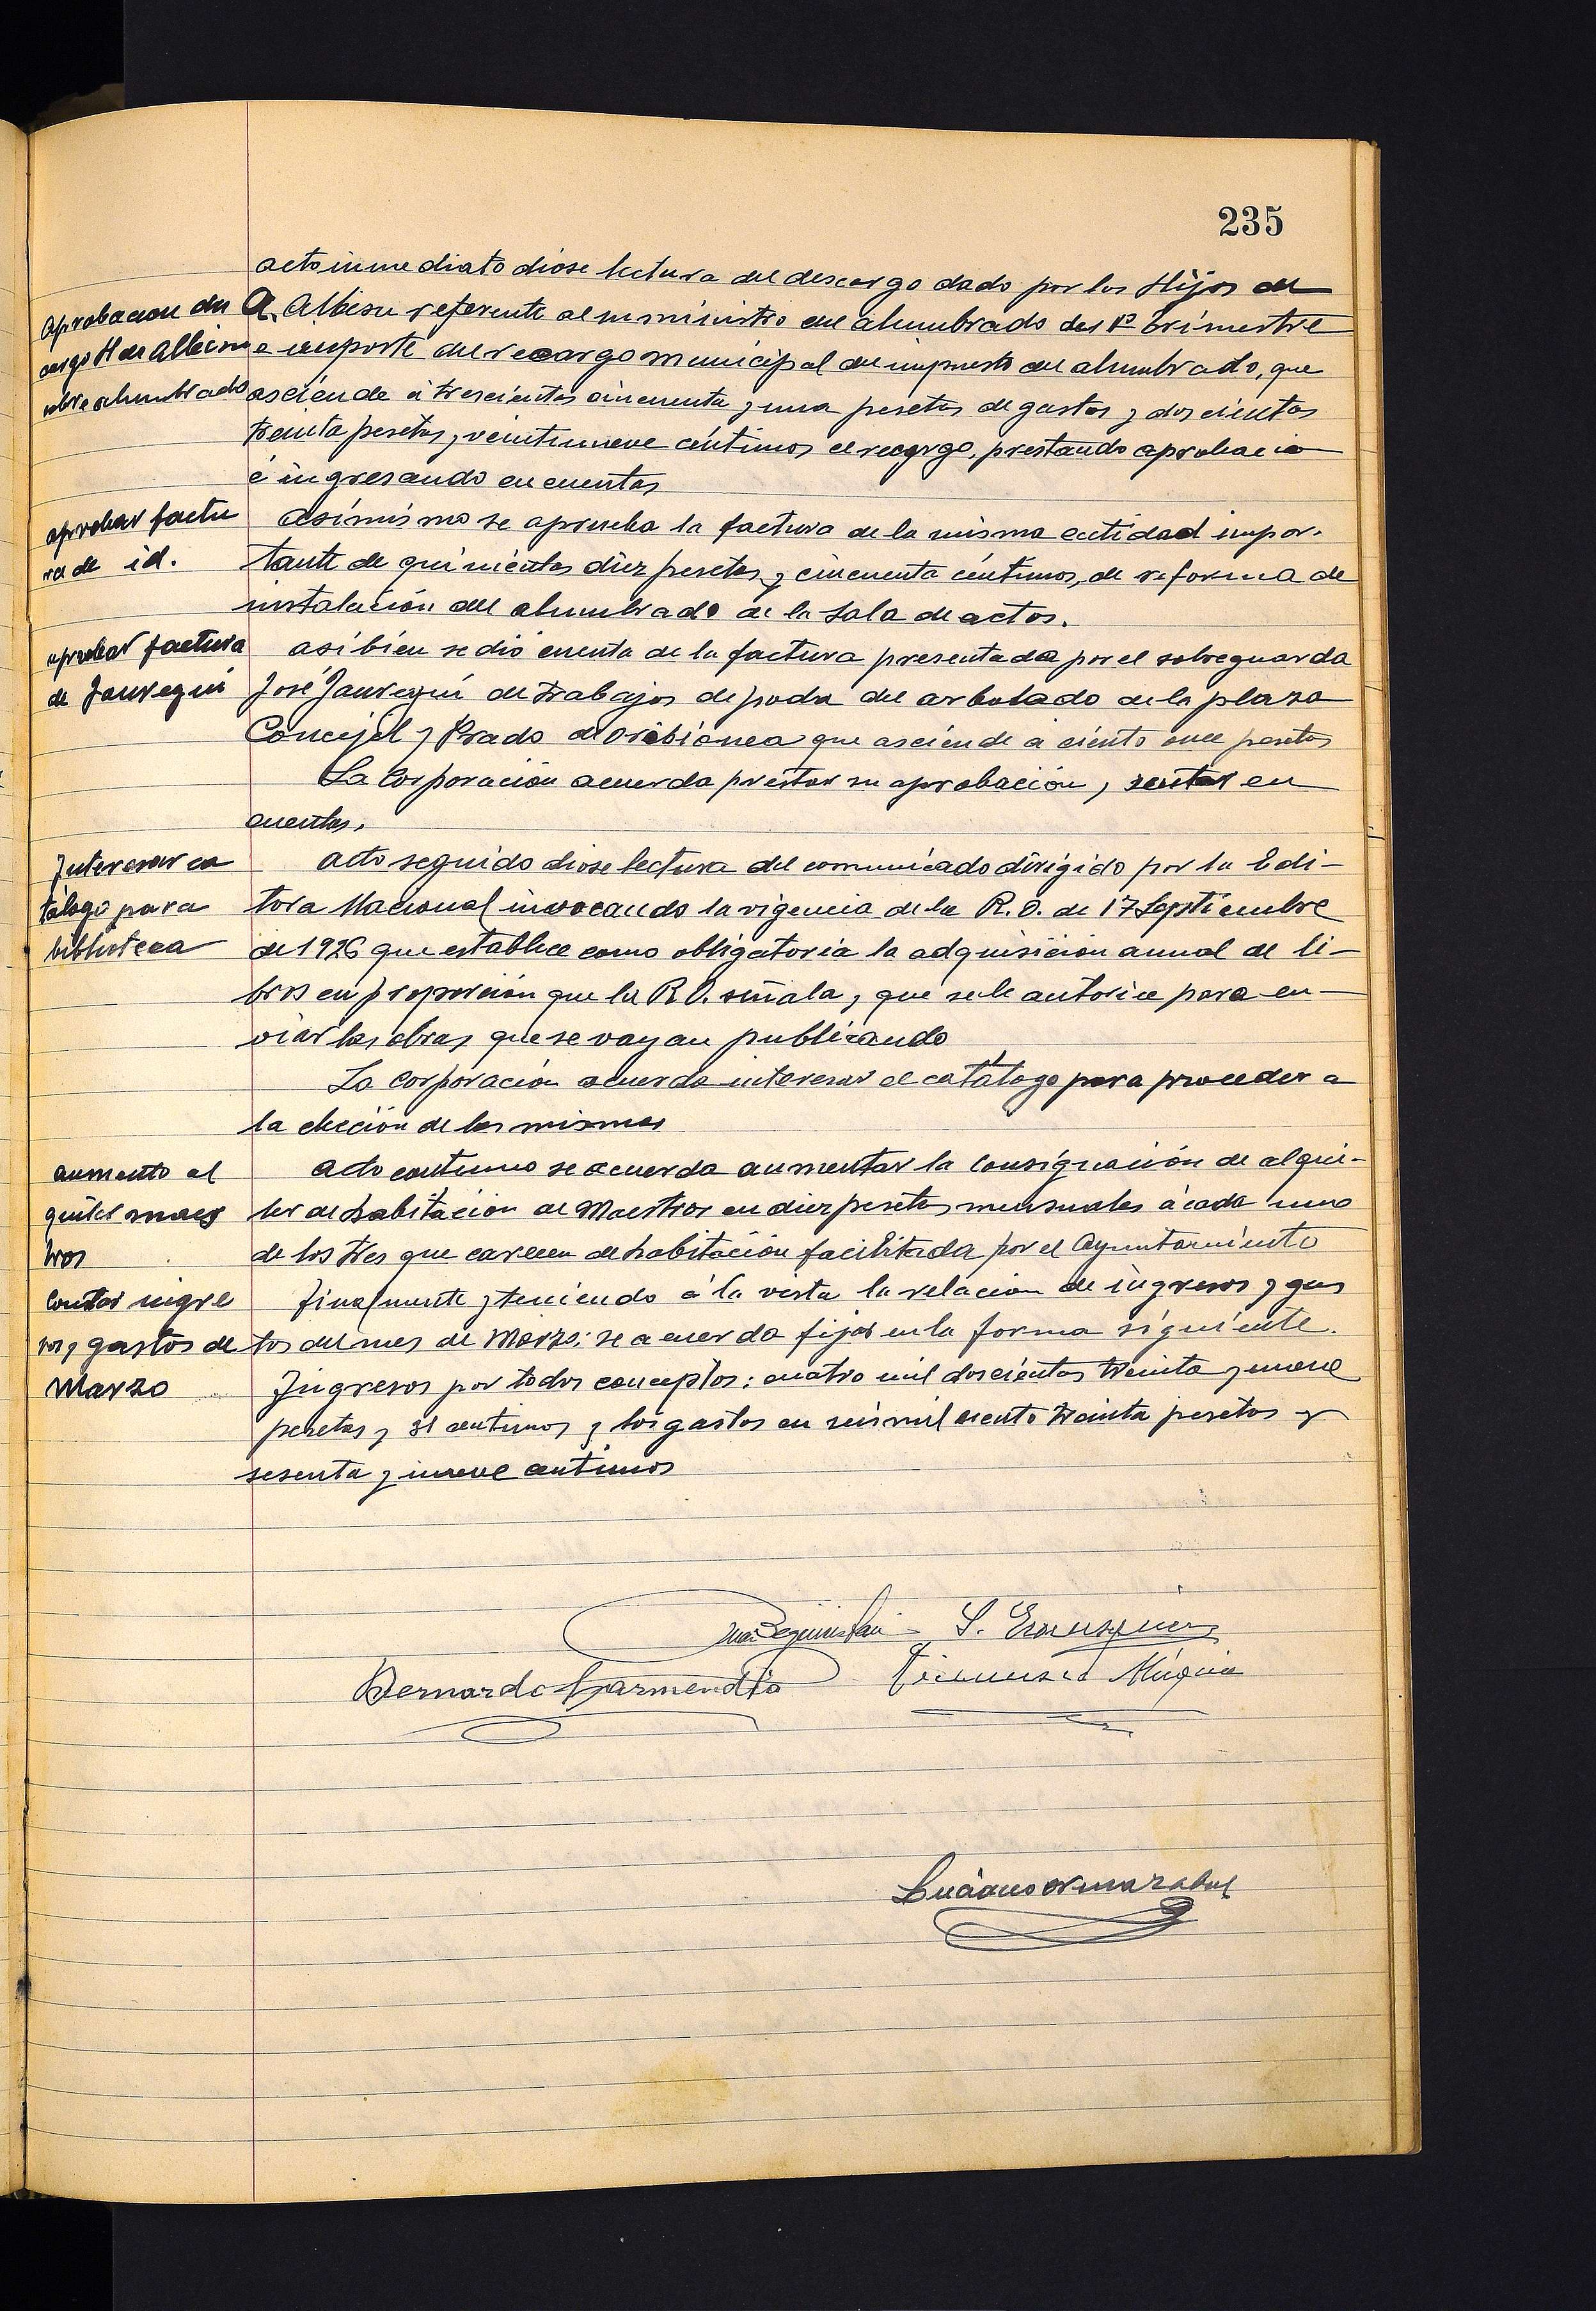 235
acto inmediato diose lectura del descargo dado por los Hijos de
Aprobacion des
A. Albisu referente al suministro del alumbrado del 1º trimestre
cargo H de Albisu
e importe del recargo municipal del impuesto del alumbrado, que
sobre alumbrado
asciende á trescientas cincuenta y una pesetas de gastos y doscientas
treinta pesetas y veintinueve céntimos el recargo, prestando aprobació
é ingresando en cuentas
aprobar factu
asimismo se aprueba la factura de la misma entidad impor-
ra de id.
tante de quinientas diez pesetas y cincuenta céntimos, de reforma de
instalación del alumbrado de la Sala de actos.
aprobar factura
asi bien se dió cuenta de la factura presentada por el sobreguarda
de Jauregui
José Jauregui de trabajos de poda del arbolado de la plaza
Concejil y Prado de que asciende a ciento once pesetas
La Corporación acuerda prestar su aprobación y sentar en
cuentas.
Interesar ca
acto seguido diose lectura del comunicado dirigido por la Edi-
tálogo para
tora Nacional invocando la vigencia de la R.O. de 17 Septiembre
biblioteca
de 1926 que establece como obligatoria la adquisición anual de li-
bros en proporción que la R.O. señala, y que se le autorice para en-
viar las obras que se vayan publicando
La corporación acuerda interesar el catálogo para proceder a
la elección de los mismos
aumento al
acto contínuo se acuerda aumentar la consignación de alqui-
quiler maes
ler de habitación de Maestros en diez pesetas mensuales á cada uno
tros
de los tres que carecen de habitación facilitada por el Ayuntamiento
Contar ingre
finalmente y teniendo á la vista la relación de ingresos y gas
sos y gastos de
tos del mes de Marzo; se acuerda fijar en la forma siguiente.
Marzo
Ingresos por todos conceptos: cuatro mil doscientas treinta y nueve
pesetas y 31 centimos y los gastos en seis mil ciento treinta pesetas y
sesenta y nueve centimos
Bernardo Garmendia
Francisco Múgica
Luciano Ormazabal